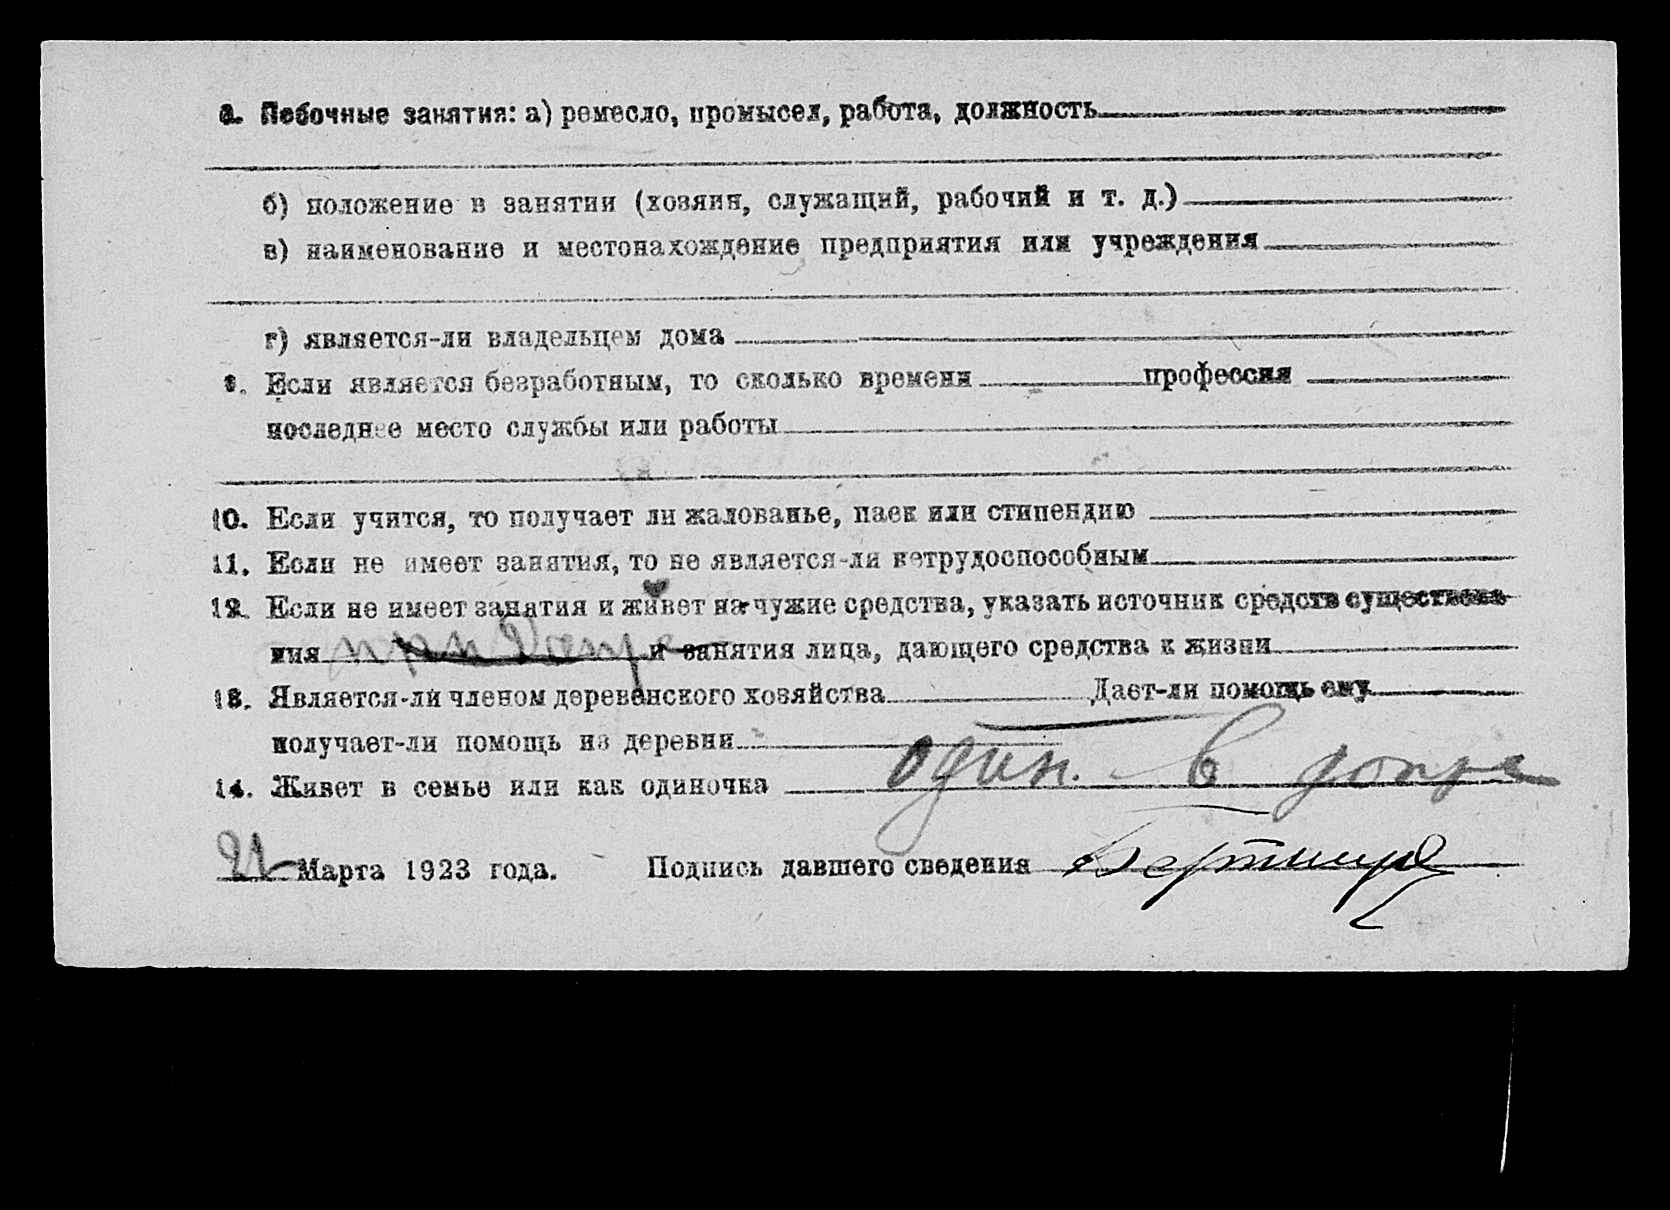 8. Побочные занятия: а) ремесло, промысел, работа, должность
б) положение в занятии (хозяин, служащий, рабочий и т. д.)
в) наименование и местонахождение предприятия или учреждения
г) является-ли владельцем дома
9. Если является безработным, то сколько времени профессия
последнее место службы или работы
10. Если учится, то получает ли жалованье, паек или стипендию
11. Если не имеет занятия, то не является-ли нетрудоспособным
12. Если не имеет занятия и живет на чужие средства, указать источник средств существова-
ния при Допре и занятия лица, дающего средства к жизни
13. Является-ли членом деревенского хозяйства Дает-ли помощь ему
получает-ли помощь из деревни
14. Живет в семье или как одиночка один. в допре
21 Марта 1923 года. Подпись давшего сведения